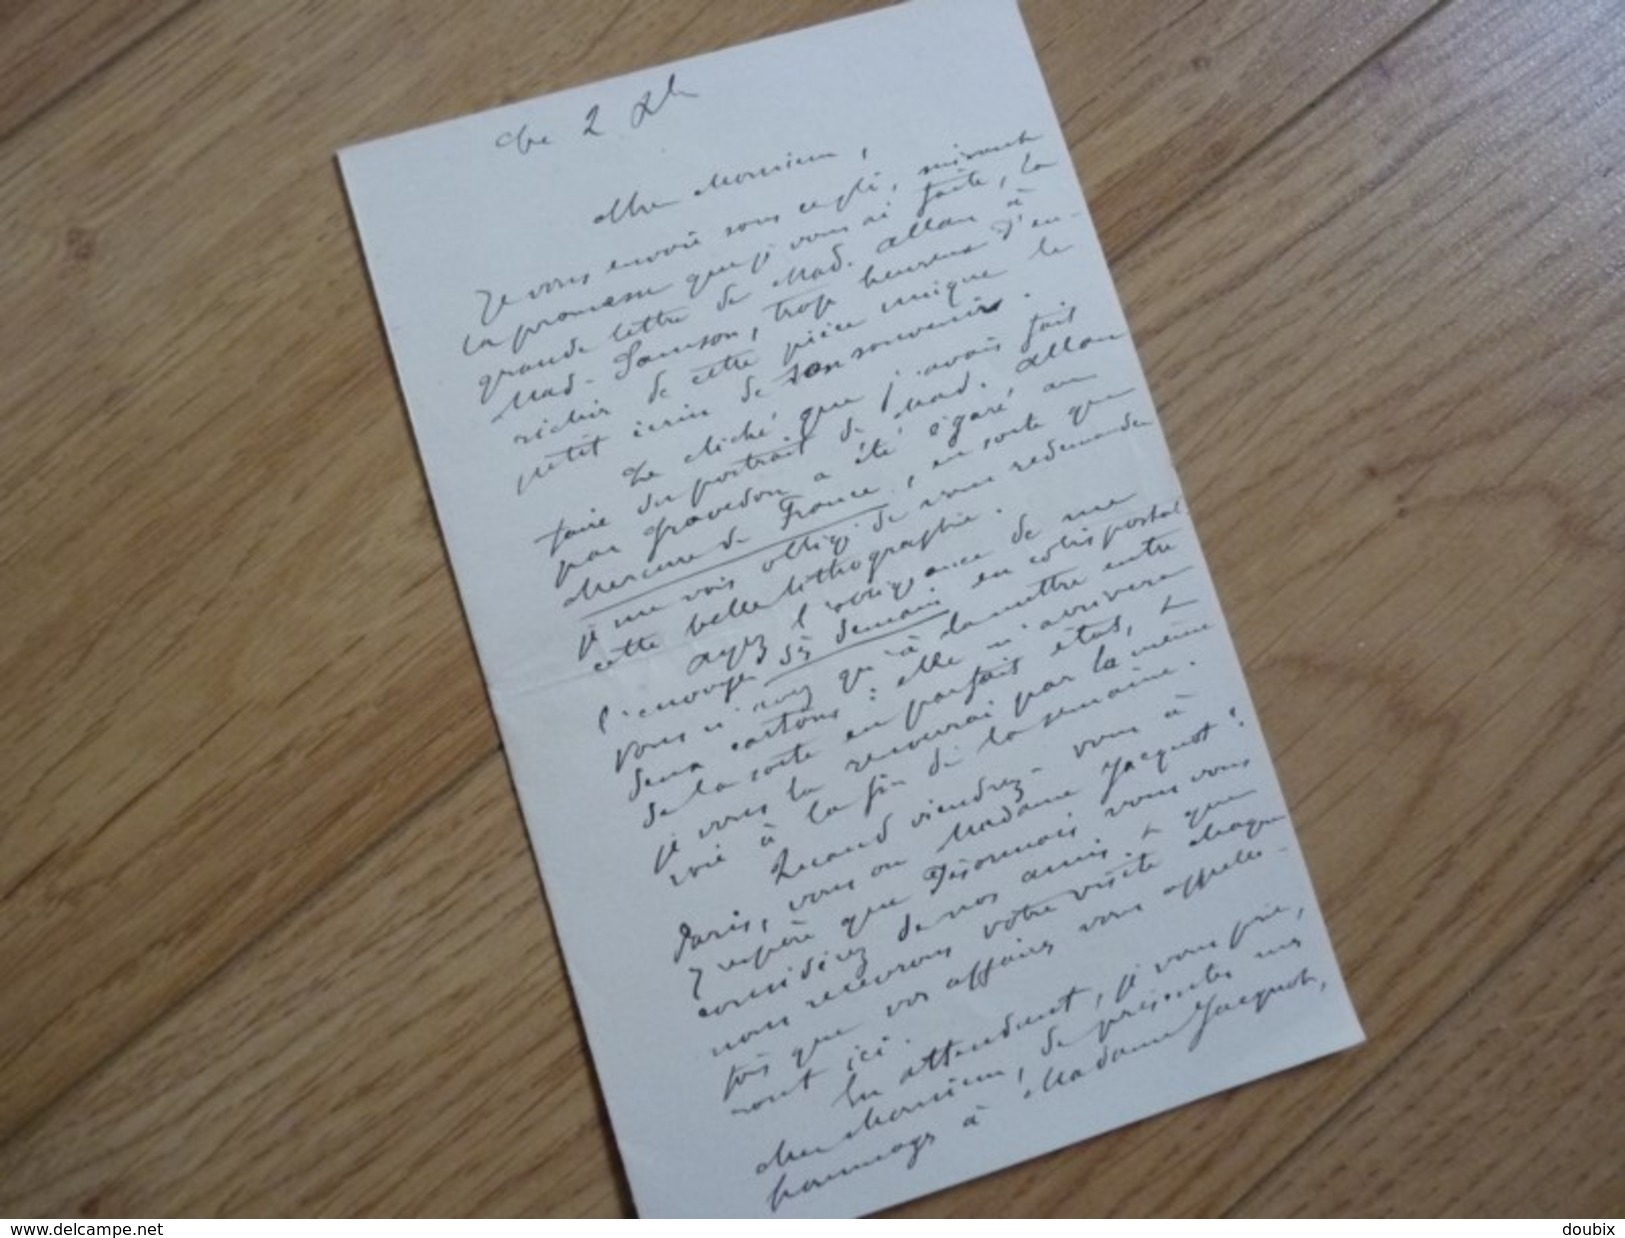 Ce 2 Xbre
Cher Monsieur,
Je vous envoie sous ce pli, suivant
la promesse que je vous ai faite, la
grande lettre de Mad. Allan à
Mad. Samson, trop heureux d'en-
richir de cette pièce unique le
petit écrin de son souvenir.
Le cliché que j'avais fait
faire du portrait de Mad. Allan
par Grévedon a été égaré au
Mercure de France, en sorte que
je me vois obligé de vous redemander
cette belle lithographie.
Ayez l'obligeance de me
l'envoyer dès demain en colis postal
Vous n'avez qu'à la mettre entre
deux cartons : elle m'arrivera
de la sorte en parfait état, et
je vous la renverrai par la même
voie à la fin de la semaine.
Quand viendrez-vous à
Paris, vous ou Madame Jacquot ?
J'espère que désormais vous vous
considérez de nos amis et que
nous recevrons votre visite chaque
fois que vos affaires vous appelle-
ront ici.
En attendant, je vous prie,
cher Monsieur, de présenter mes
hommages à Madame Jacquot,
www.delcampe.net
doubix